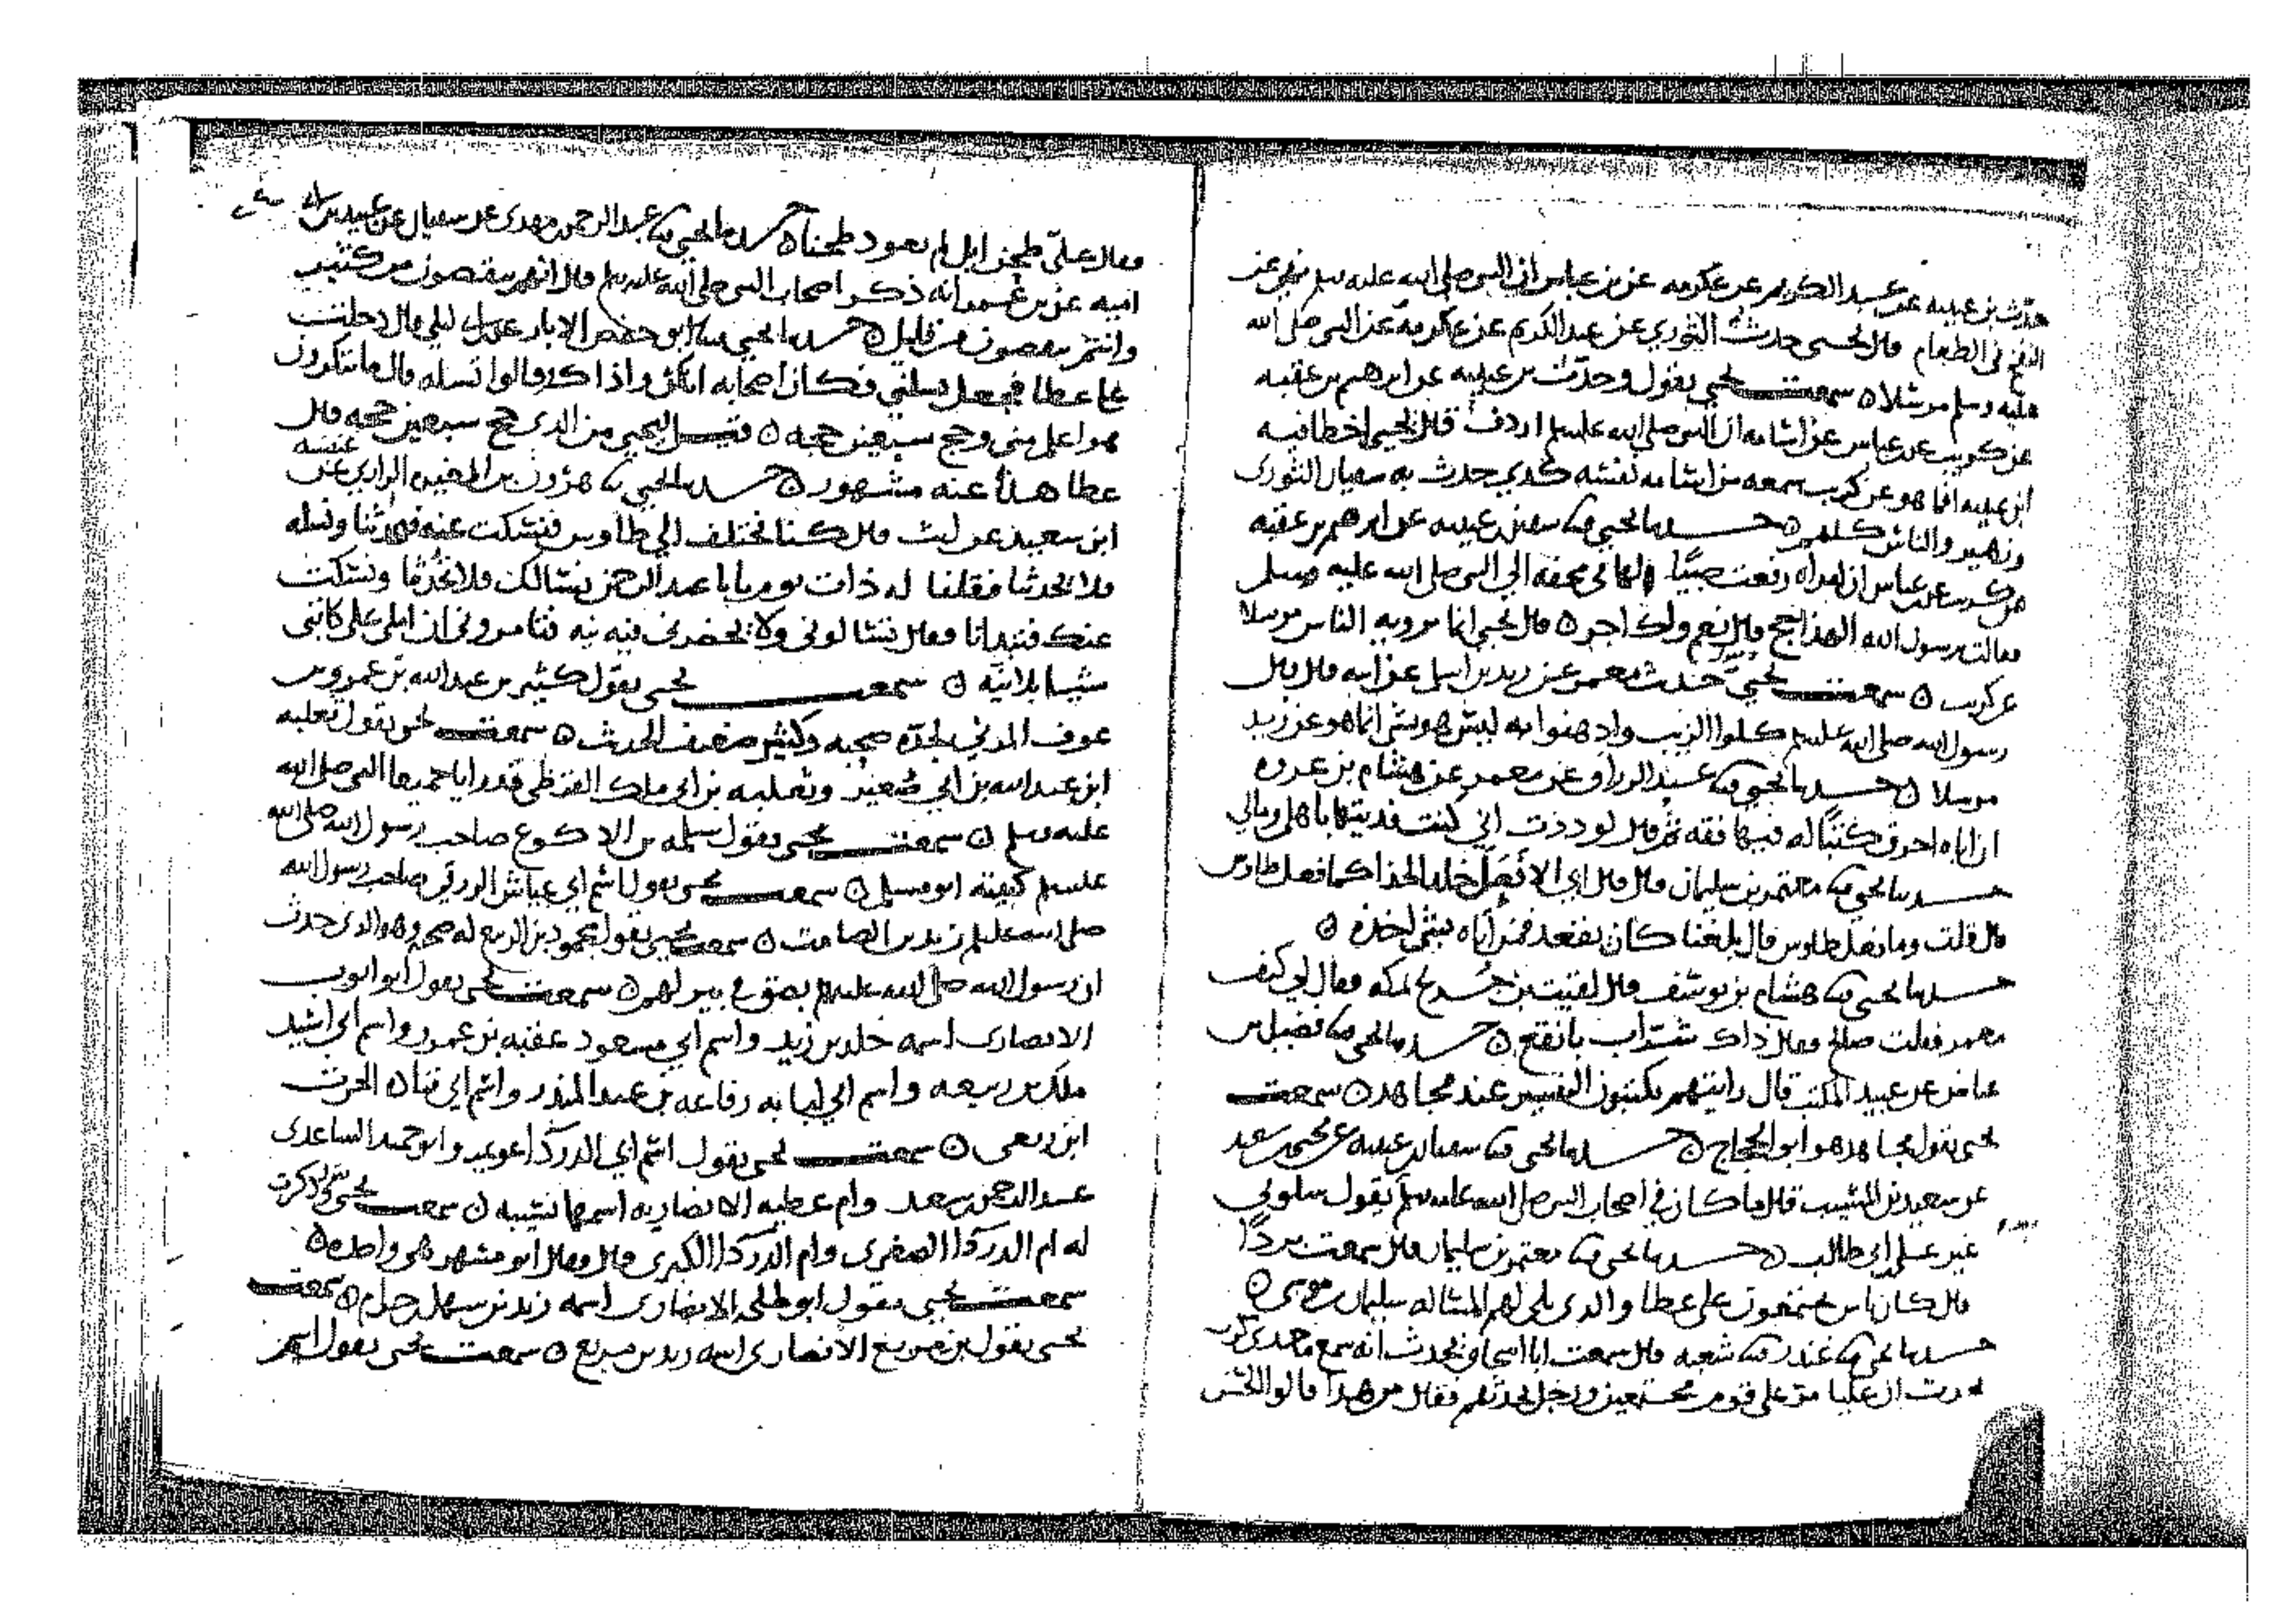 حديث بن عيينه عن عبد الكريم عن عكرمه عن بن عباس ان النبي صلى الله عليه وسلم نهى عن
النفخ في الطعام قال يحيى حدث به الثوري عن عبد الكريم عن عكرمة عن النبي صلى الله
عليه وسلم مرسلا ه سمعت يحيى يقول وحديث بن عيينه عن ابرهيم بن عقبه
عن كريب عن بن عباس عن اسامه ان النبي صلى الله عليه وسلم اردف قال يحيى اخطا فيه
ابن عيينه انما هو عن كريب سمعه من اسامه نفسه كذي حدث به سفيان الثوري
وزهير والناس كلهم ه حدثنا يحيى نا سفين بن عيينه عن ابرهيم بن عقبه
عن كريب عن بن عباس ان امراه رفعت صبيا لها في محفه الى النبي صلى الله عليه وسلم
فقالت يرسول الله الهذا حج قال نعم ولك اجر ه قال يحيى انما يرويه الناس مرسلا
عن كريب ه سمعت يحيى يقول حديث معمر عن زيد بن اسلم عن ابيه قال قال
رسول الله صلى الله عليه وسلم كلوا الزيت وادهنوا به ليس هو بشي انما هو عن زيد
مرسلا ه حدثنا يحيى نا عبد الرزاق عن معمر عن هشام بن عروه
ان اباه احرق كتبًا له فيها فقه ثم قال لوددت اني كنت فديتها باهلي ومالي
حدثنا يحيى نا معتمر بن سليمان قال قال ابي الا تفعل خالد الحذا كما فعل طاوس
قال قلت وما فعل طاوس قال بلغنا كان يقعد فمن اتاه بشي اخذه ه
حدثنا يحيى نا هشام بن يوسف قال لقيت بن جريج بمكه فقال لي كيف
معمر فقلت صالح فقال ذاك شراب بانقع ه حدثنا يحيى نا فضيل بن
عياض عن عبيد المكتب قال رايتهم يكتبون التفسير عند مجاهد ه سمعت
يحيى يقول مجاهد هو ابو الحجاج ه حدثنا يحيى نا سفيان بن عيينه عن يحيى بن سعيد
عن سعيد بن المسيب قال ما كان في اصحاب النبي صلى الله عليه وسلم يقول سلوني
غير علي بن ابي طالب ه حدثنا يحيى نا معتمر بن سليمان قال سمعت بردًا
قال كان ناس يجتمعون على عطا والذي يلي لهم المسأله سليمان بن موسى ه
حدثنا يحيى نا غندر نا شعبه قال سمعت ابا اسحاق يحدث انه سمع معدي كرب
يحدث ان عليا مر على قوم مجتمعين ورجل يحدثهم فقال من هذا قالوا الحسن
فقال علي طحن ابل لم تعود طحنا ه حدثنا يحيى نا عبد الرحمن بن مهدي عن سفيان عن
اميه عن بن عمر انه ذكر اصحاب النبي صلى الله عليه وسلم قال انهم ينقصون من كثير
وانتم تنقصون من قليل ه حدثنا يحيى نا ابو حفص الابار عن بن ابي ليلى قال دخلت
على عطا فجعل يسلني فكان اصحابه انكروا ذاك وقالوا تسله قال ما تنكرون
هو اعلم مني وحج سبعين حجه ه قيل ليحيى من الذي حج سبعين حجه قال
عطا هذا عنه مشهور ه حدثنا يحيى نا هرون بن المغيره الرازي عن عنبسه
ابن سعيد عن ليث قال كنا نختلف الى طاوس فنسكت عنه فيحدثنا ونسله
فلا يحدثنا فقلنا له ذات يوم يابا عبد الرحمن نسالك فلا تحدثنا ونسكت
عنك فتبدانا فقال تسالوني ولا يحضرني فيه نيه فتامروني ان املي على كاتبي
شيا بلا نية ه سمعت يحيى يقول كثير بن عبد الله بن عمرو بن
عوف المزني لجده صحبه وكثير ضعيف الحديث ه سمعت يحيى يقول ثعلبه
ابن عبد الله بن ابي صعير وثعلبه بن ابي ملك القرظي قد رايا جميعا النبي صلى الله
عليه وسلم ه سمعت يحيى يقول سلمه بن الاكوع صاحب رسول الله صلى الله
عليه وسلم كنيته ابو مسلم ه سمعت يحيى يقول اسم ابي عياش الزرقي صاحب رسول الله
صلى الله عليه وسلم زيد بن الصامت ه سمعت يحيى يقول محمود بن الربيع له صحبه وهو الذي حدث
ان رسول الله صلى الله عليه وسلم بصق في بير لهم ه سمعت يحيى يقول ابو ايوب
الانصاري اسمه خالد بن زيد واسم ابي مسعود عقبه بن عمرو واسم ابي اسيد
ملك بن ربيعه واسم ابي لبابه رفاعه بن عبد المنذر واسم ابي قتاده الحرث
ابن ربعي ه سمعت يحيى يقول اسم ابي الدرداء عويمر وابو حميد الساعدي
عبد الرحمن بن سعد وام عطيه الانصاريه اسمها نسيبه ه سمعت يحيى وذكرت
له ام الدردا الصغرى وام الدردا الكبرى قال وقال ابو مسهر هي واحده ه
سمعت يحيى يقول ابو طلحه الانصاري اسمه زيد بن سهل بن حرام ه سمعت
يحيى يقول بن مربع الانصاري اسمه زيد بن مربع ه سمعت يحيى يقول اسم